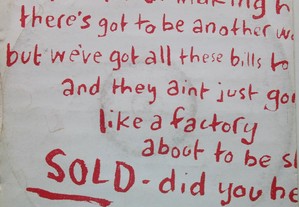 making h
there's got to be another w
but we've got all these bills to
and they aint just go
like a factory
about to be s
SOLD - did you he